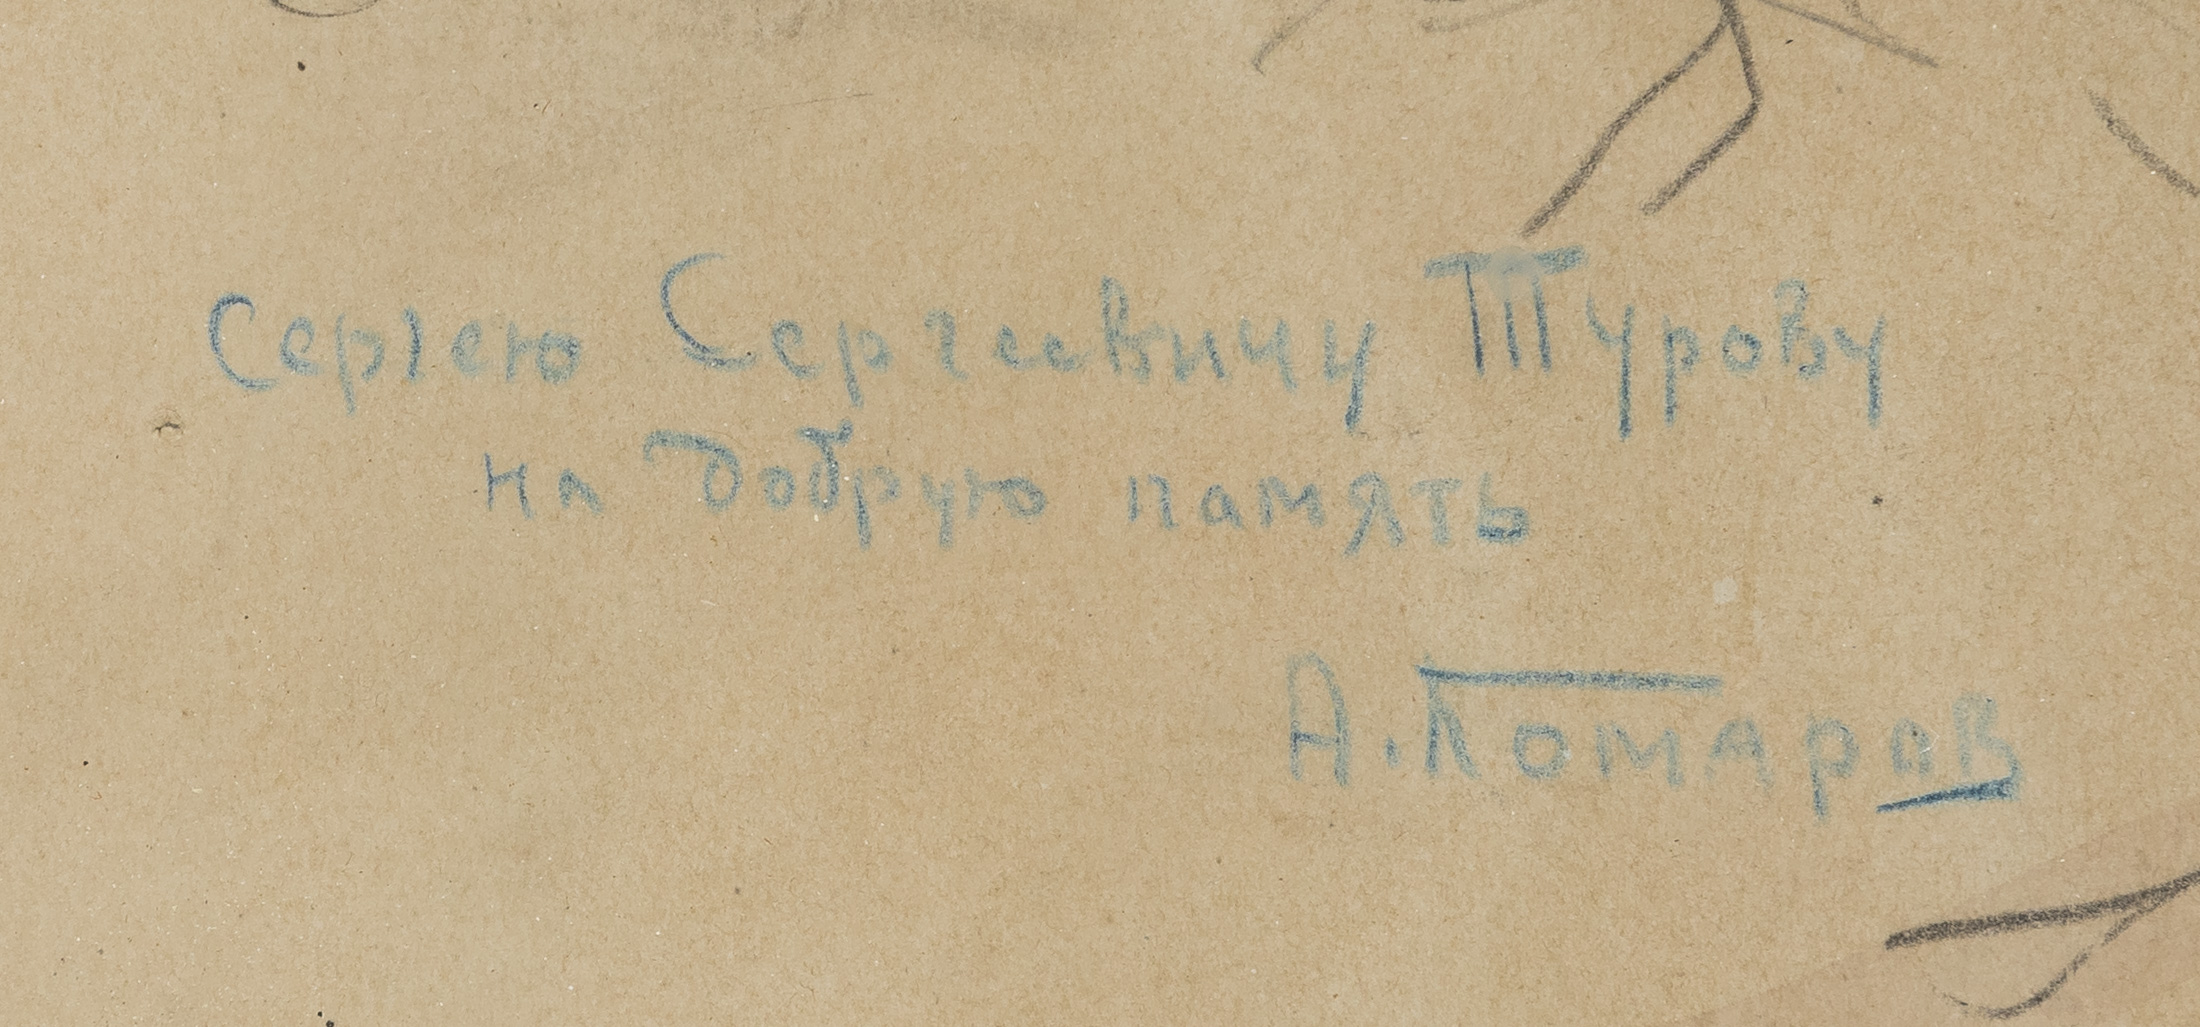 Сергею Сергеевичу Турову
на добрую память
А. Комаров